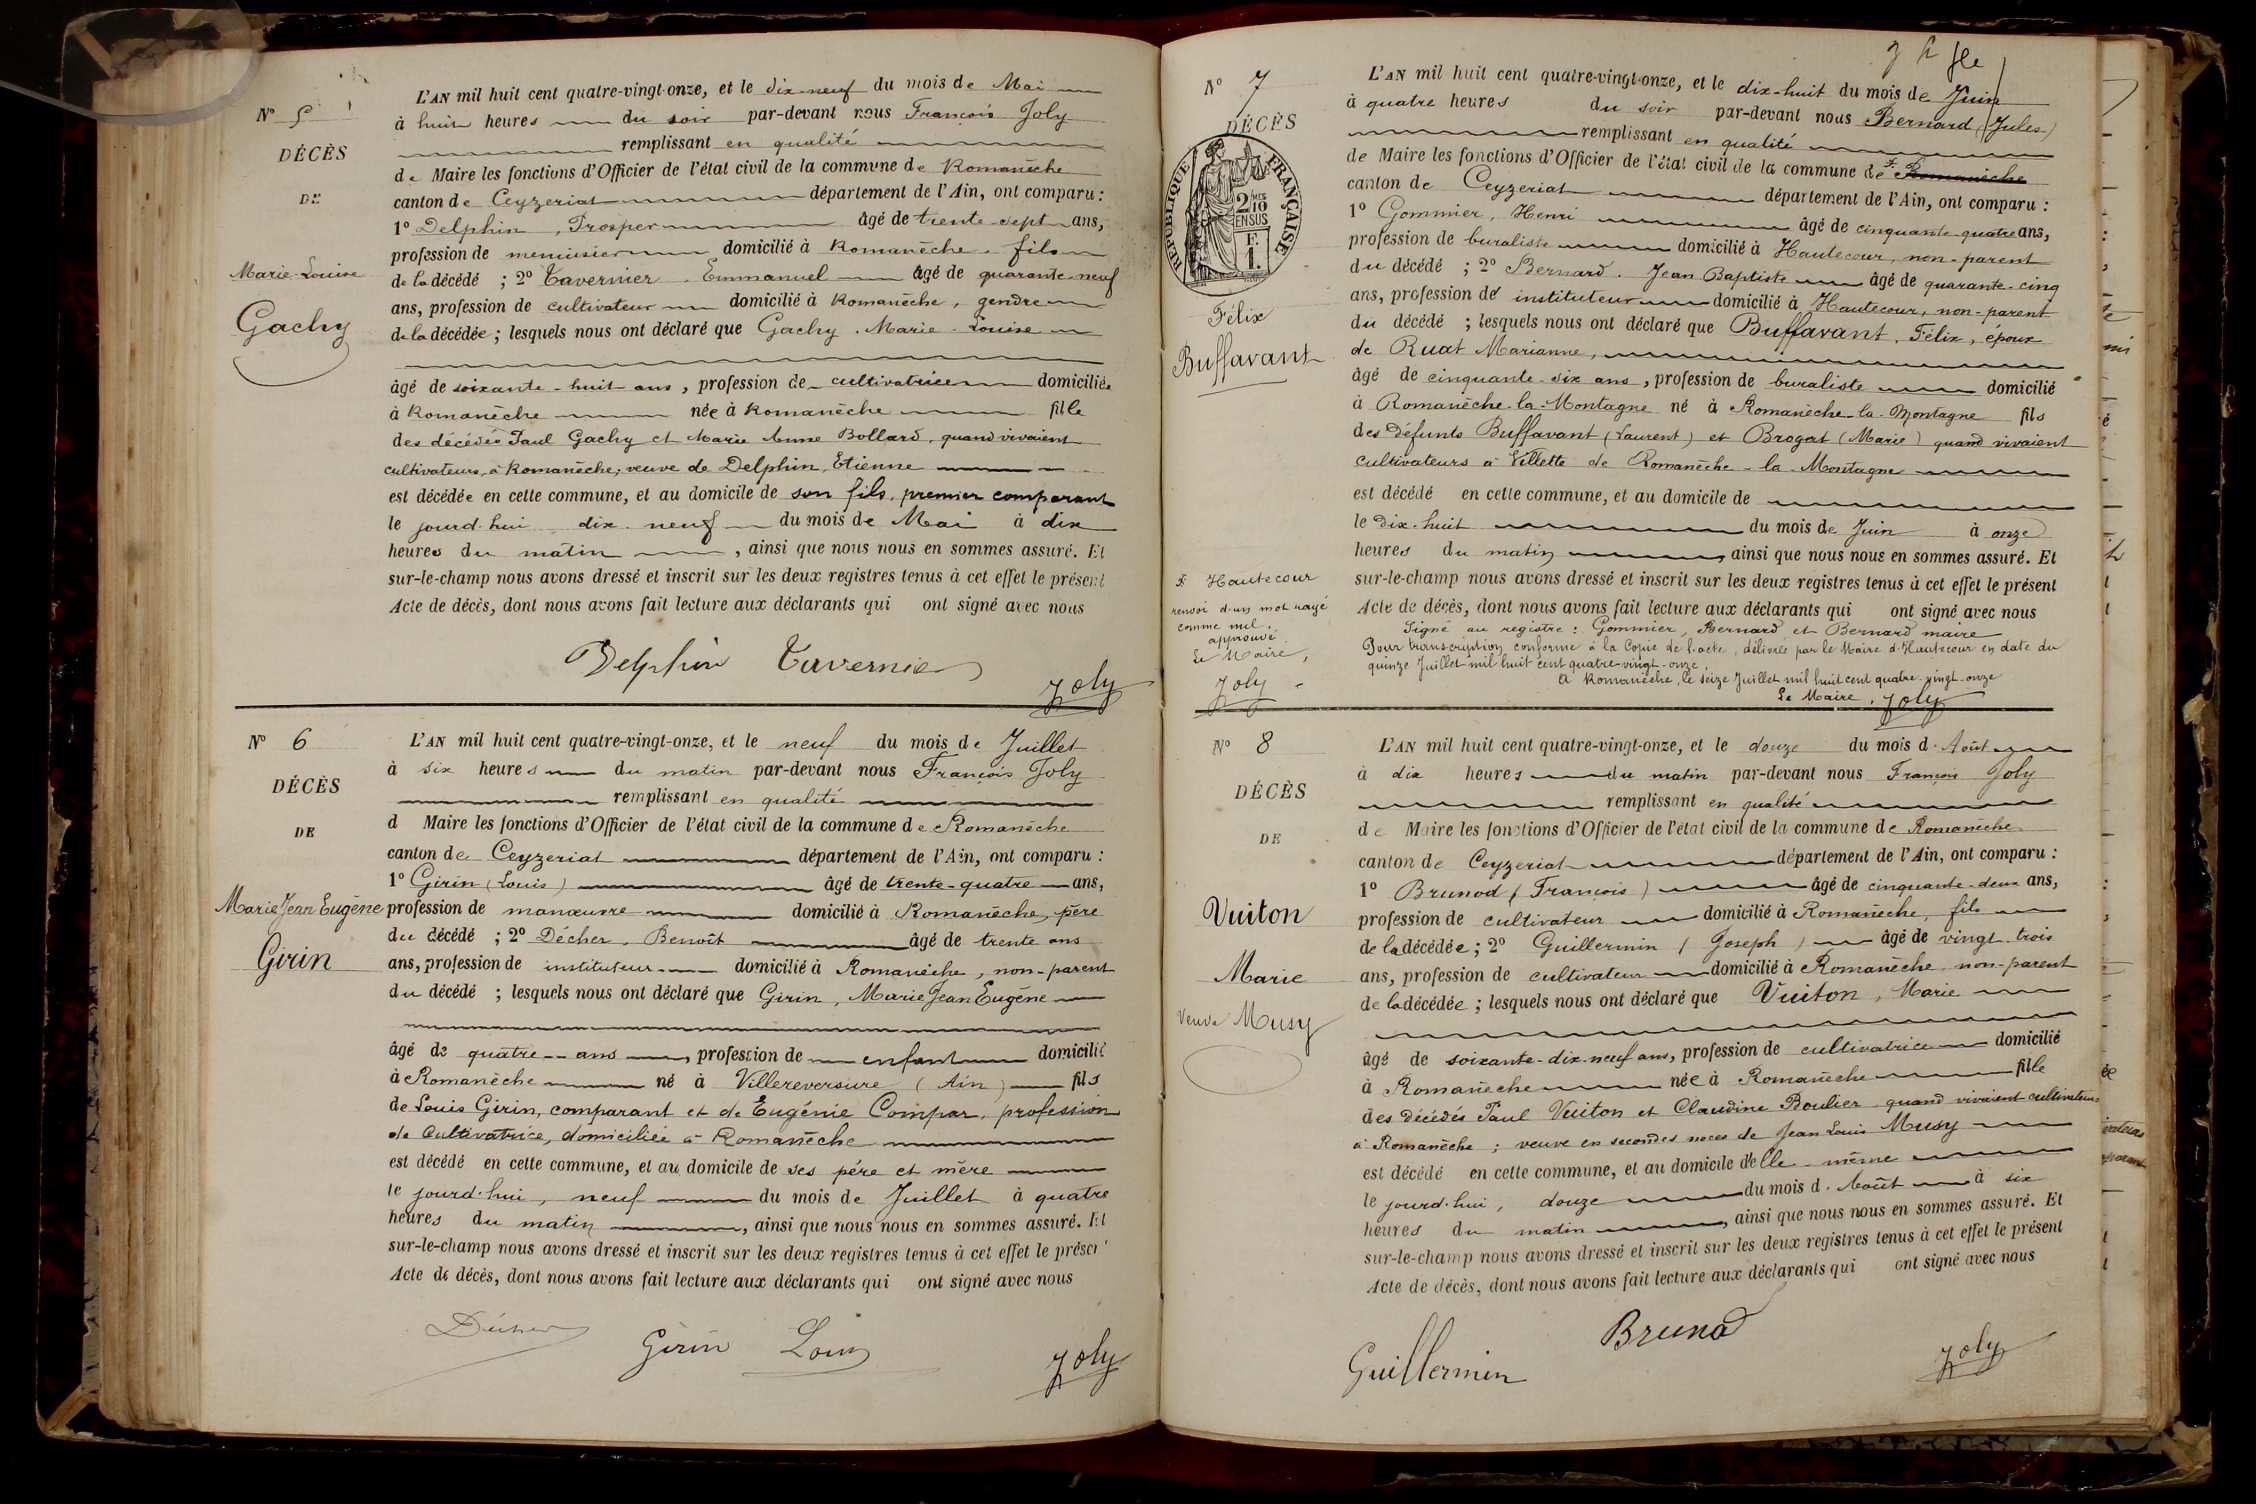 N° 5
DÉCÈS
DE
Marie-Louise
Gachy
L'AN mil huit cent quatre-vingt-onze, et le dix-neuf du mois de Mai
à huit heures du soir par-devant nous François Joly
remplissant en qualité
de Maire les fonctions d'Officier de l'état civil de la commune de Romanèche
canton de Ceyzeriat département de l'Ain, ont comparu :
1° Delphin, Prosper âgé de trente-sept ans,
profession de menuisier domicilié à Romanèche, fils
de la décédé ; 2° Tavernier, Emmanuel âgé de quarante-neuf
ans, profession de cultivateur domicilié à Romanèche, gendre
de la décédée ; lesquels nous ont déclaré que Gachy, Marie-Louise
âgé de soixante-huit ans, profession de cultivatrice domiciliée
à Romanèche née à Romanèche fille
des décédés Paul Gachy et Marie Anne Bollard, quand vivaient
cultivateurs, à Romanèche, veuve de Delphin, Etienne
est décédée en cette commune, et au domicile de son fils, premier comparant
le jourd'hui dix-neuf du mois de Mai à dix
heures du matin, ainsi que nous nous en sommes assuré. Et
sur-le-champ nous avons dressé et inscrit sur les deux registres tenus à cet effet le présent
Acte de décès, dont nous avons fait lecture aux déclarants qui ont signé avec nous
Delphin Tavernier Joly
N° 6
DÉCÈS
DE
Marie Jean Eugène
Girin
L'AN mil huit cent quatre-vingt-onze, et le neuf du mois de Juillet
à six heures du matin par-devant nous François Joly
remplissant en qualité
d Maire les fonctions d'Officier de l'état civil de la commune de Romanèche
canton de Ceyzeriat département de l'Ain, ont comparu :
1° Girin (Louis) âgé de trente-quatre ans,
profession de manœuvre domicilié à Romanèche, père
du décédé ; 2° Décher, Benoît âgé de trente ans
ans, profession de instituteur domicilié à Romanèche, non-parent
du décédé ; lesquels nous ont déclaré que Girin, Marie Jean Eugène
âgé de quatre ans, profession de enfant domicilié
à Romanèche né à Villereversure (Ain) fils
de Louis Girin, comparant et de Eugénie Compar, profession
de Cultivatrice, domiciliée à Romanèche
est décédé en cette commune, et au domicile de ses père et mère
le jourd'hui, neuf du mois de Juillet à quatre
heures du matin, ainsi que nous nous en sommes assuré. Et
sur-le-champ nous avons dressé et inscrit sur les deux registres tenus à cet effet le présen
Acte de décès, dont nous avons fait lecture aux déclarants qui ont signé avec nous
Décher Girin Louis Joly
N° 7
DÉCÈS
RÉPUBLIQUE FRANÇAISE
2/10 EN SUS
Félix
Buffavant
L'AN mil huit cent quatre-vingt-onze, et le dix-huit du mois de Juin
à quatre heures du soir par-devant nous Bernard (Jules)
remplissant en qualité
de Maire les fonctions d'Officier de l'état civil de la commune de Romanèche
canton de Ceyzeriat département de l'Ain, ont comparu :
1° Gommier, Henri âgé de cinquante-quatre ans,
profession de buraliste domicilié à Hautecour, non-parent
du décédé ; 2° Bernard, Jean Baptiste âgé de quarante-cinq
ans, profession de instituteur domicilié à Hautecour, non-parent
du décédé ; lesquels nous ont déclaré que Buffavant, Félix, époux
de Ruat Marianne,
âgé de cinquante-six ans, profession de buraliste domicilié
à Romanèche-la-Montagne né à Romanèche-la-Montagne fils
des défunts Buffavant (Laurent) et Brogat (Marie) quand vivaient
cultivateurs à Villette de Romanèche-la-Montagne
est décédé en cette commune, et au domicile de
le dix-huit du mois de Juin à onze
heures du matin, ainsi que nous nous en sommes assuré. Et
sur-le-champ nous avons dressé et inscrit sur les deux registres tenus à cet effet le présent
Acte de décès, dont nous avons fait lecture aux déclarants qui ont signé avec nous
Signé au registre : Gommier, Bernard et Bernard maire
Pour transcription conforme à la Copie de l'acte, délivrée par le Maire d'Hautecour en date du
quinze Juillet mil huit cent quatre-vingt-onze.
A Romanèche, le seize Juillet mil huit cent quatre-vingt-onze
Le Maire, Joly
Hautecour
renvoi d'un mot rayé
comme nul.
approuvé
Le Maire,
Joly
N° 8
DÉCÈS
DE
Vuiton
Marie
Veuve Musy
L'AN mil huit cent quatre-vingt-onze, et le douze du mois d'Août
à dix heures du matin par-devant nous François Joly
remplissant en qualité
de Maire les fonctions d'Officier de l'état civil de la commune de Romanèche
canton de Ceyzeriat département de l'Ain, ont comparu :
1° Brunod (François) âgé de cinquante-deux ans,
profession de cultivateur domicilié à Romanèche, fils
de la décédée ; 2° Guillermin (Joseph) âgé de vingt-trois
ans, profession de cultivateur domicilié à Romanèche non-parent
de la décédée ; lesquels nous ont déclaré que Vuiton, Marie
âgé de soixante-dix-neuf ans, profession de cultivatrice domicilié
à Romanèche née à Romanèche fille
des décédés Paul Vuiton et Claudine Boulier quand vivaient cultivateurs
à Romanèche ; veuve en secondes noces de Jean Louis Musy
est décédé en cette commune, et au domicile d'elle-même
le jourd'hui, douze du mois d'Août à six
heures du matin, ainsi que nous nous en sommes assuré. Et
sur-le-champ nous avons dressé et inscrit sur les deux registres tenus à cet effet le présent
Acte de décès, dont nous avons fait lecture aux déclarants qui ont signé avec nous
Guillermin Brunod Joly